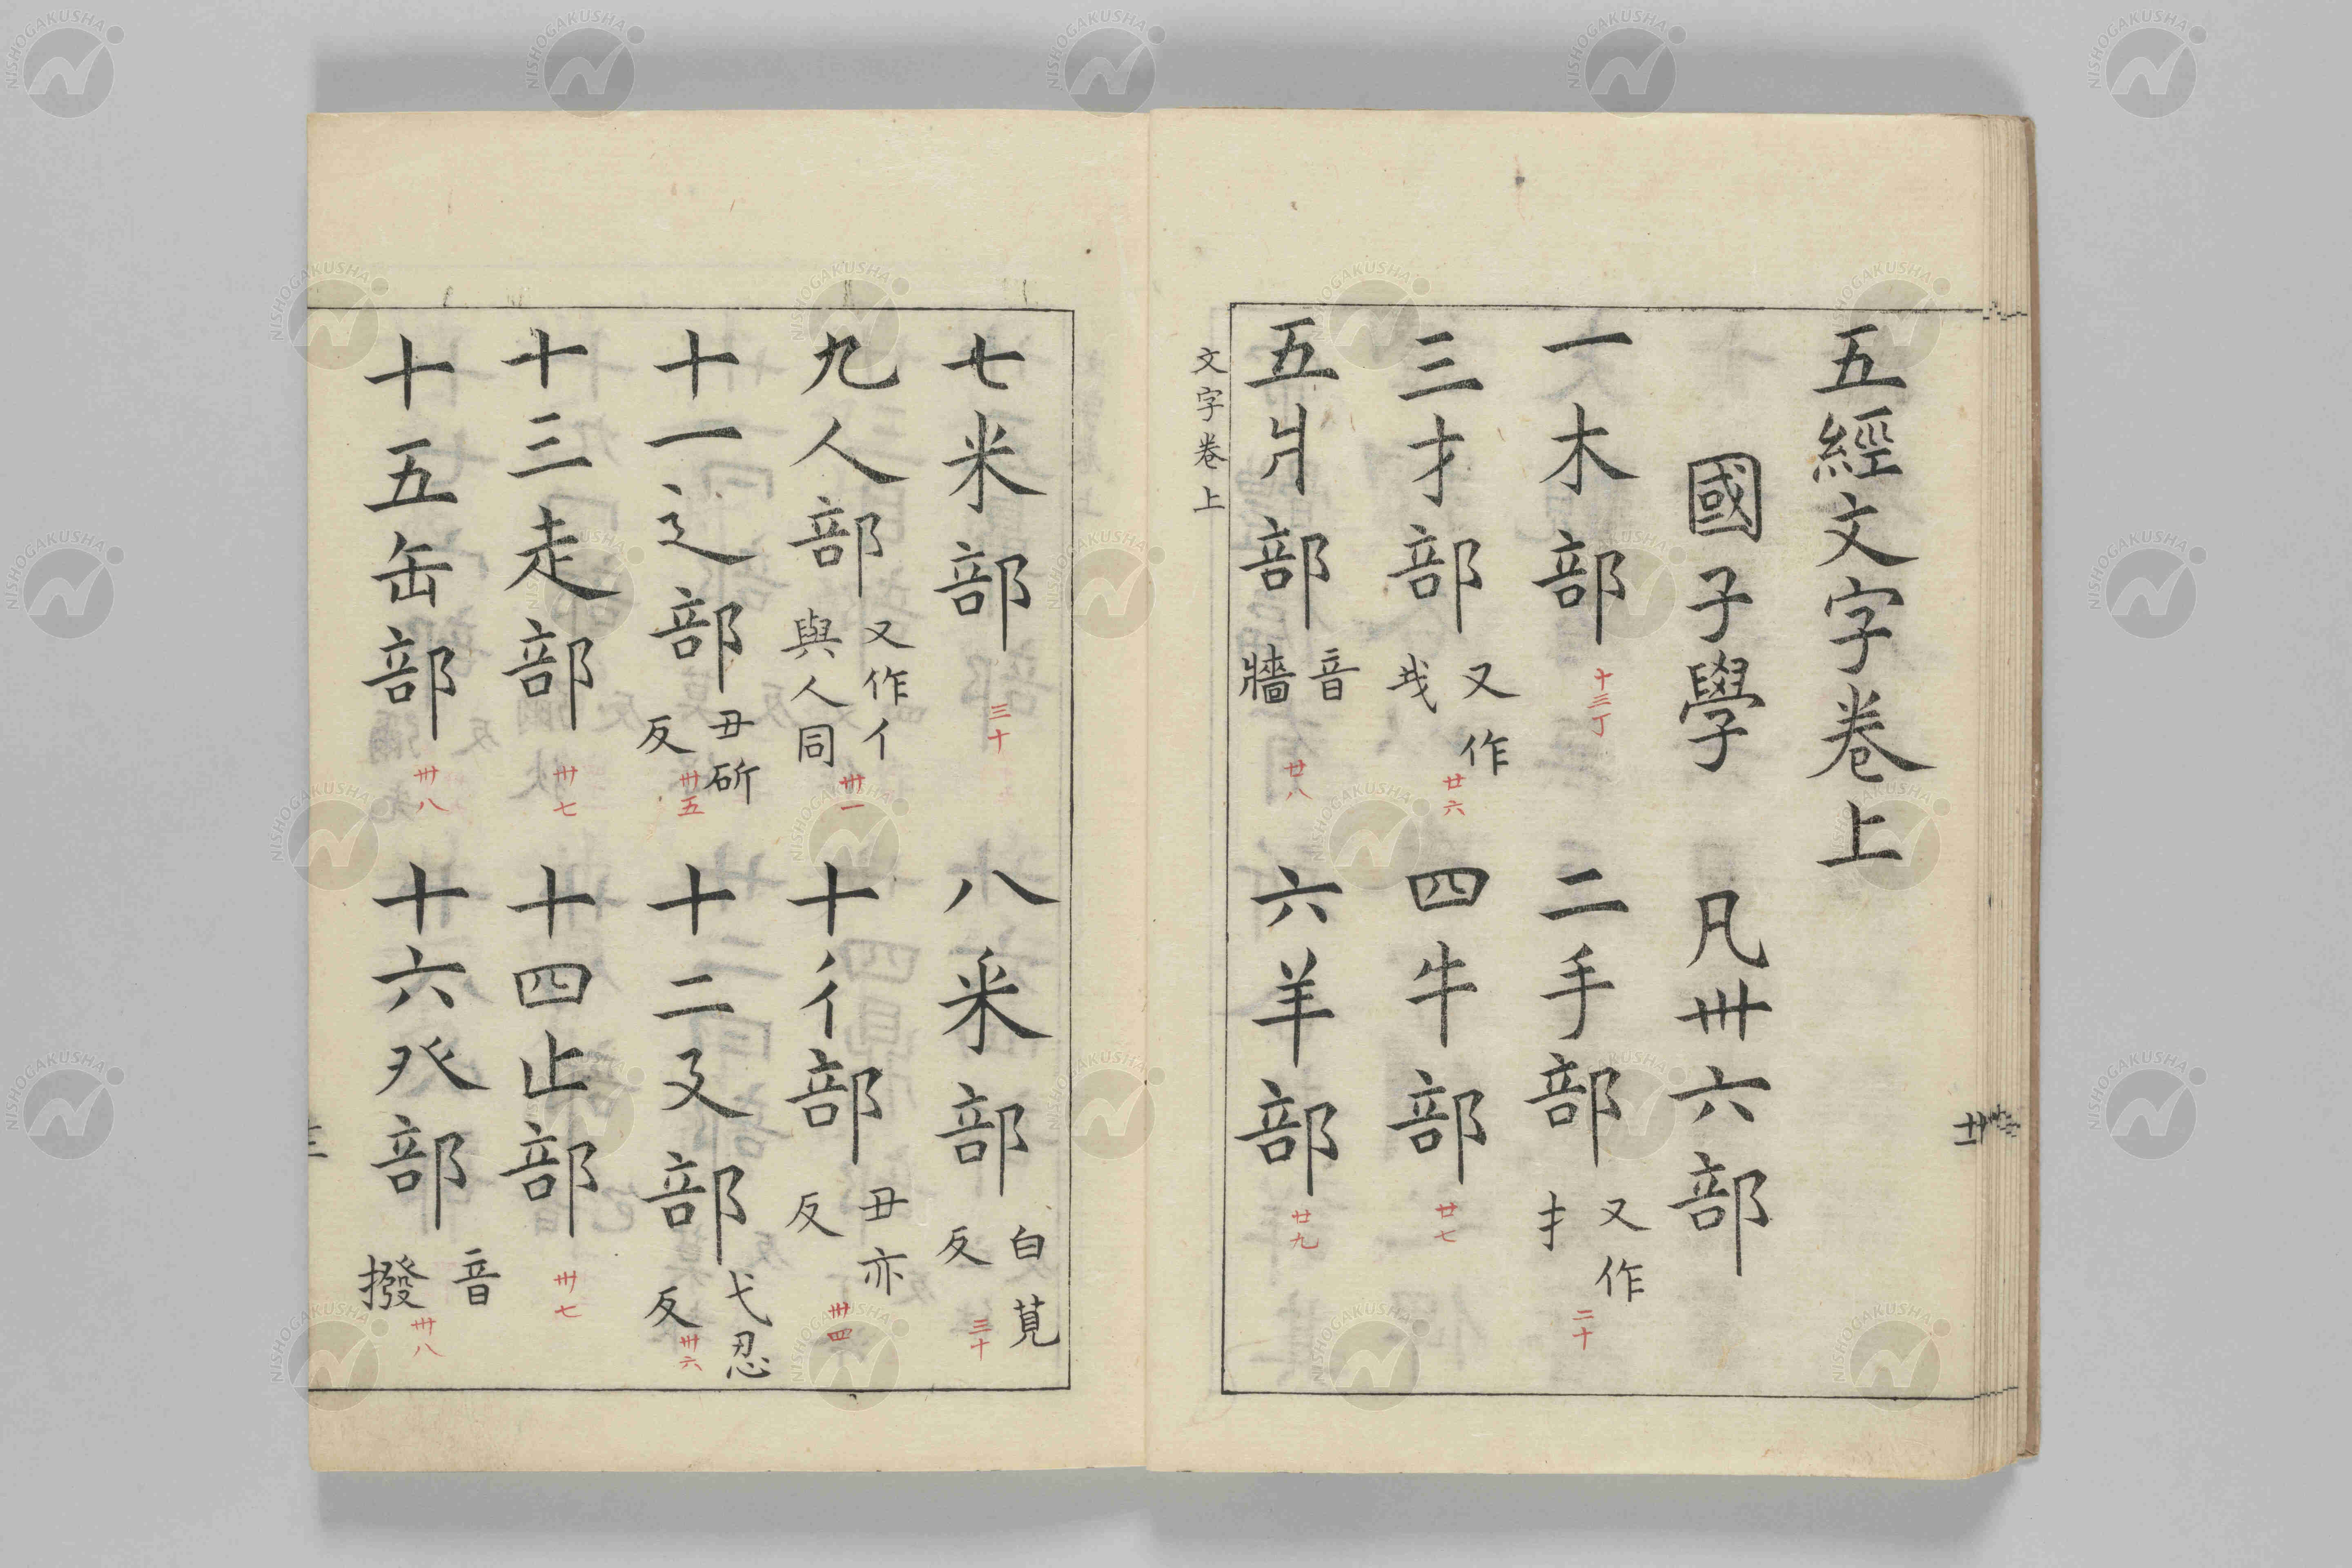 五經文字卷上
國子學 凡卅六部
一木部 十三丁 二手部 又作扌 二十
三才部 又作𢦏 廿六 四牛部 廿七
五爿部 音牆 廿八 六羊部 廿九
文字卷上
七米部 三十 八釆部 白莧反 三十
九人部 又作亻與人同 卅一 十彳部 丑亦反 卅四
十一辶部 丑斫反 卅五 十二廴部 弋忍反 卅六
十三走部 卅七 十四止部 卅七
十五缶部 卅八 十六癶部 音撥 卅八
NISHOGAKUSHA